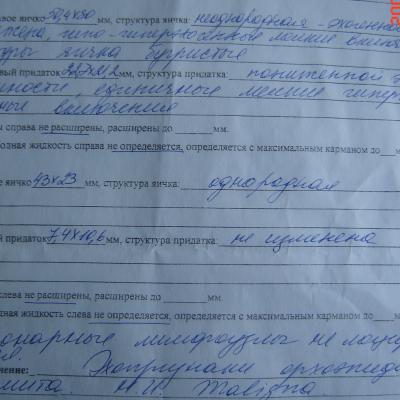 авое яичко 50,4х30 мм, структура яичка: неоднородная - эхогенно
жена, гипо-гиперэхогенные мелкие включ
уры яичка бугристые
авый придаток мм, структура придатка: пониженной э
ности, единичные мелкие гипер
ные включения
ы справа не расширены, расширены до ______ мм.
одная жидкость справа не определяется, определяется с максимальным карманом до ___м
е яичко 43х23 мм, структура яичка: однородная
й придаток 7,4х10,6 мм, структура придатка: не изменена
слева не расширены, расширены до ______ мм.
одная жидкость слева не определяется, определяется с максимальным карманом до ___мм.
онарные лимфоузлы не лоци
чение: Эхопризнаки орхоэпиди
мита.